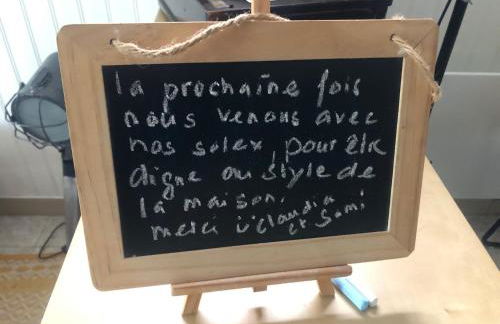 la prochaine fois
nous venons avec
nos solex, pour être
digne au style de
la maison.
merci ü claudia
et Sami